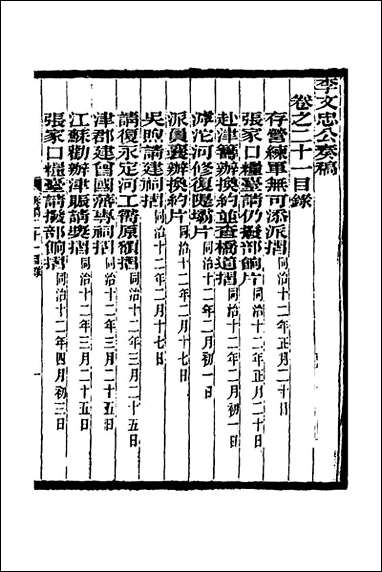 李文忠公奏稿
卷之二十一目錄
存營練軍無可添派摺同治十二年正月二十日
張家口糧臺請仍撥部餉片同治十二年正月二十日
赴津籌辦換約並查橋道摺同治十二年二月初一日
滹沱河修復隄壩片同治十二年二月初一日
派員襄辦換約片同治十二年二月十七日
吳煦請建祠摺同治十二年二月十七日
請復永定河工需原額摺同治十二年三月二十五日
津郡建曾國藩專祠摺同治十二年三月二十五日
江蘇勸辦津賑請獎摺同治十二年三月二十五日
張家口糧臺請撥部餉摺同治十二年四月初三日